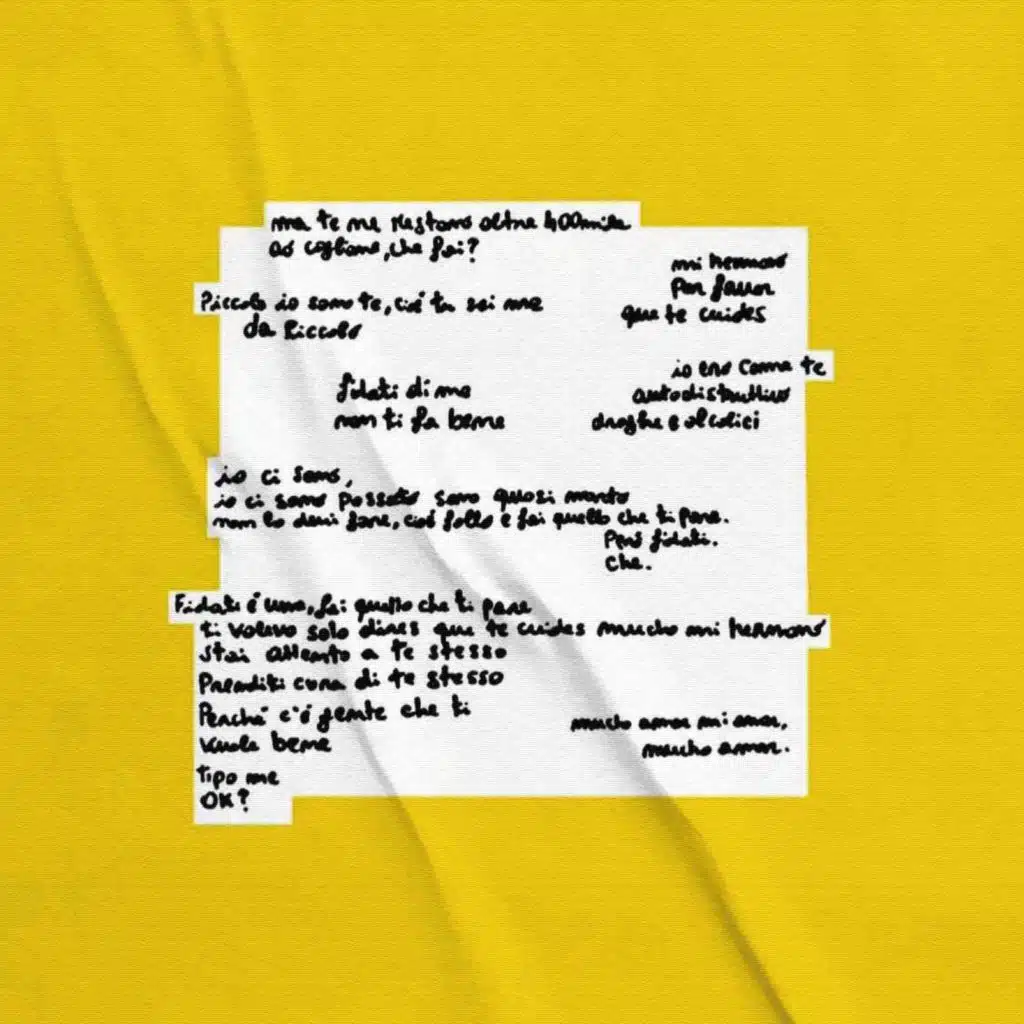 ma te ne restano oltre 400mila
ao coglione, che fai?
mi hermano
por favor
que te cuides
Piccolo io sono te, cioè tu sei me
da piccolo
io ero come te
autodistruttivo
droghe e alcolici
fidati di me
non ti fa bene
io ci sono,
io ci sono passato sono quasi morto
non lo devi fare, cioè fallo e fai quello che ti pare.
Però fidati.
che.
Fidati è uno, fai quello che ti pare
ti volevo solo dires que te cuides mucho mi hermano
stai attento a te stesso
Prenditi cura di te stesso
Perché c'è gente che ti
vuole bene
mucho amor mi amor,
mucho amor.
tipo me
OK?